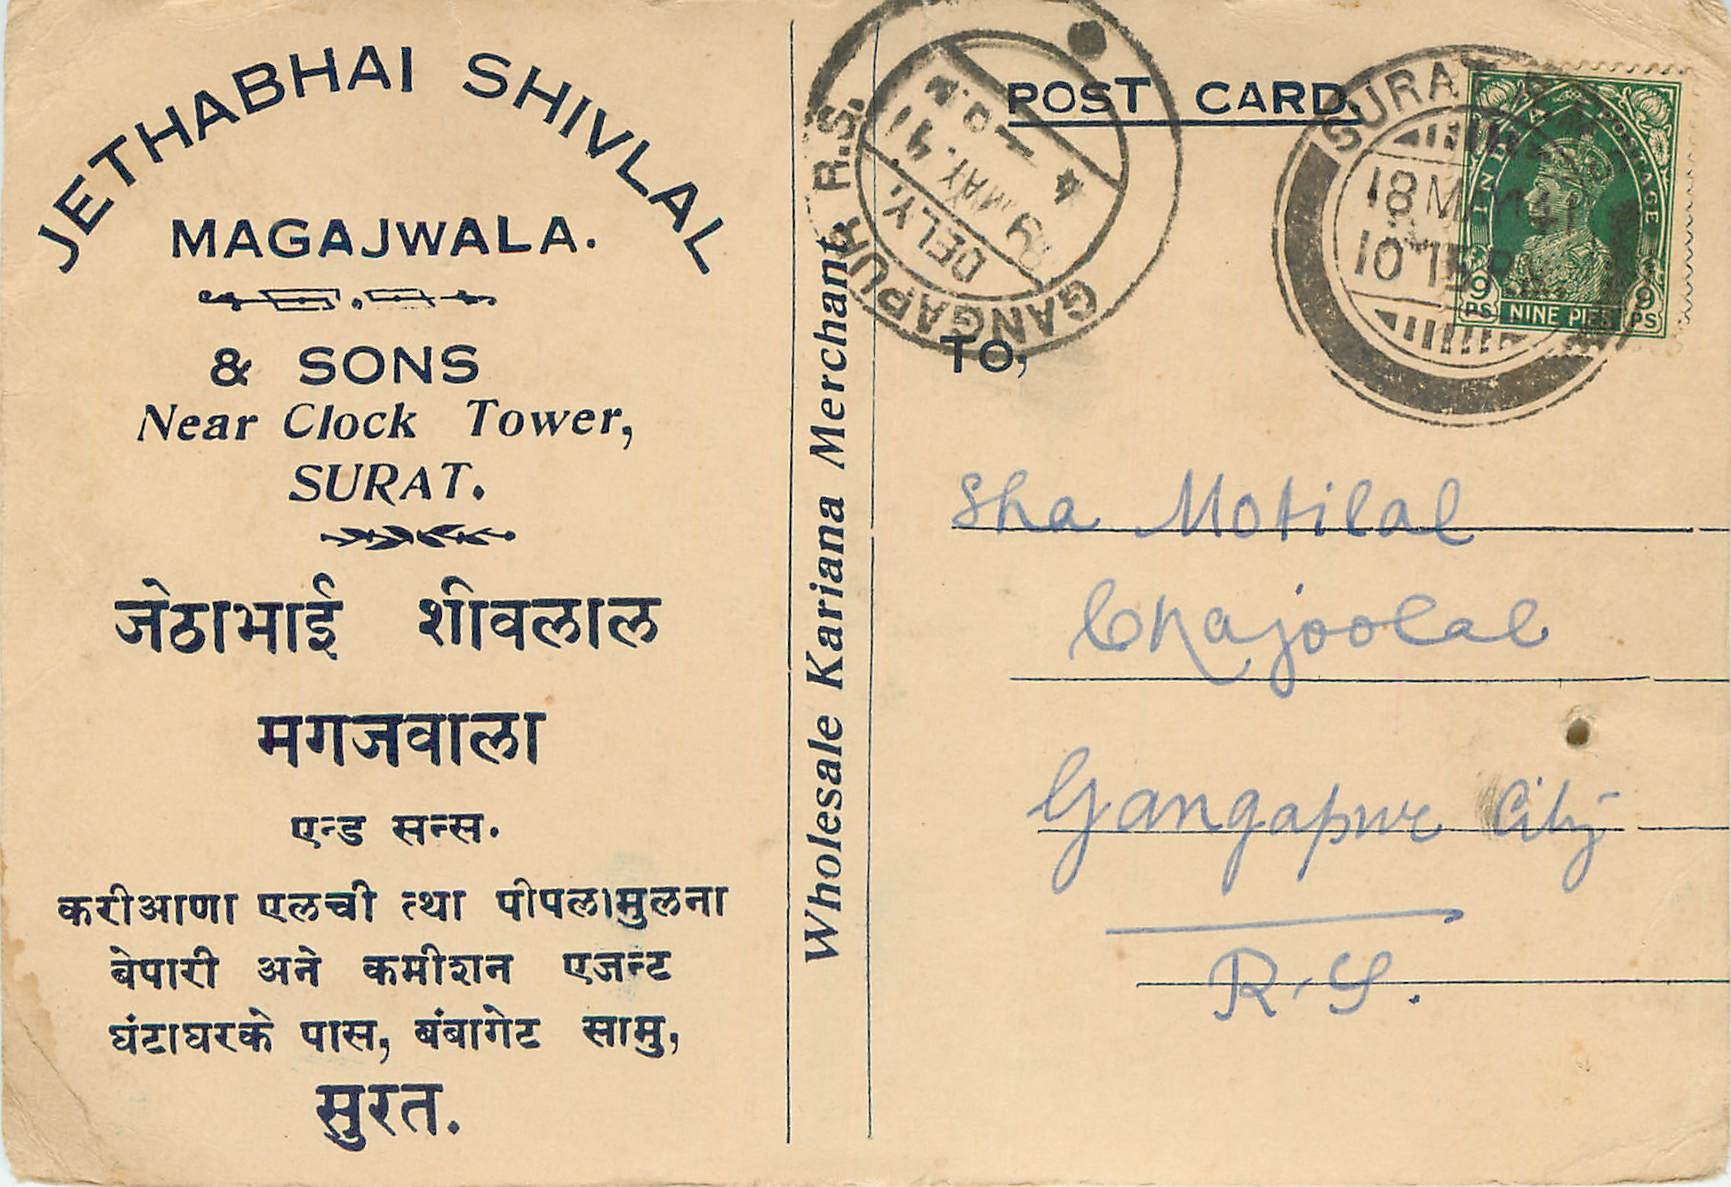 JETHABHAI SHIVLAL
MAGAJWALA.
& SONS
Near Clock Tower,
SURAT.
जेठाभाई शीवलाल
मगजवाला
एन्ड सन्स.
करीआणा एलची त्था पीपलामुलना
बेपारी अने कमीशन एजन्ट
घंटाघरके पास, बंबागेट सामु,
सुरत.
Wholesale Kariana Merchant.
POST CARD.
GANGAPUR R.S.
DELY.
MAY. 41
4 - P.M
SURAT
18 MAY 41
10-15
INDIA POSTAGE
9 PS NINE PIES 9 PS
TO,
Sha Motilal
Chajoolal
Gangapur City
R. S.